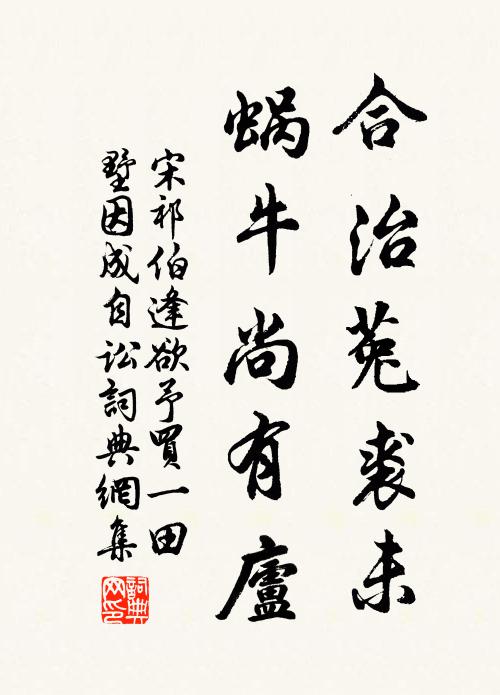 合治菟裘未
蝸牛尚有廬
宋祁伯逢欲予買一田
墅因成自訟詞典網集
詞典
网印